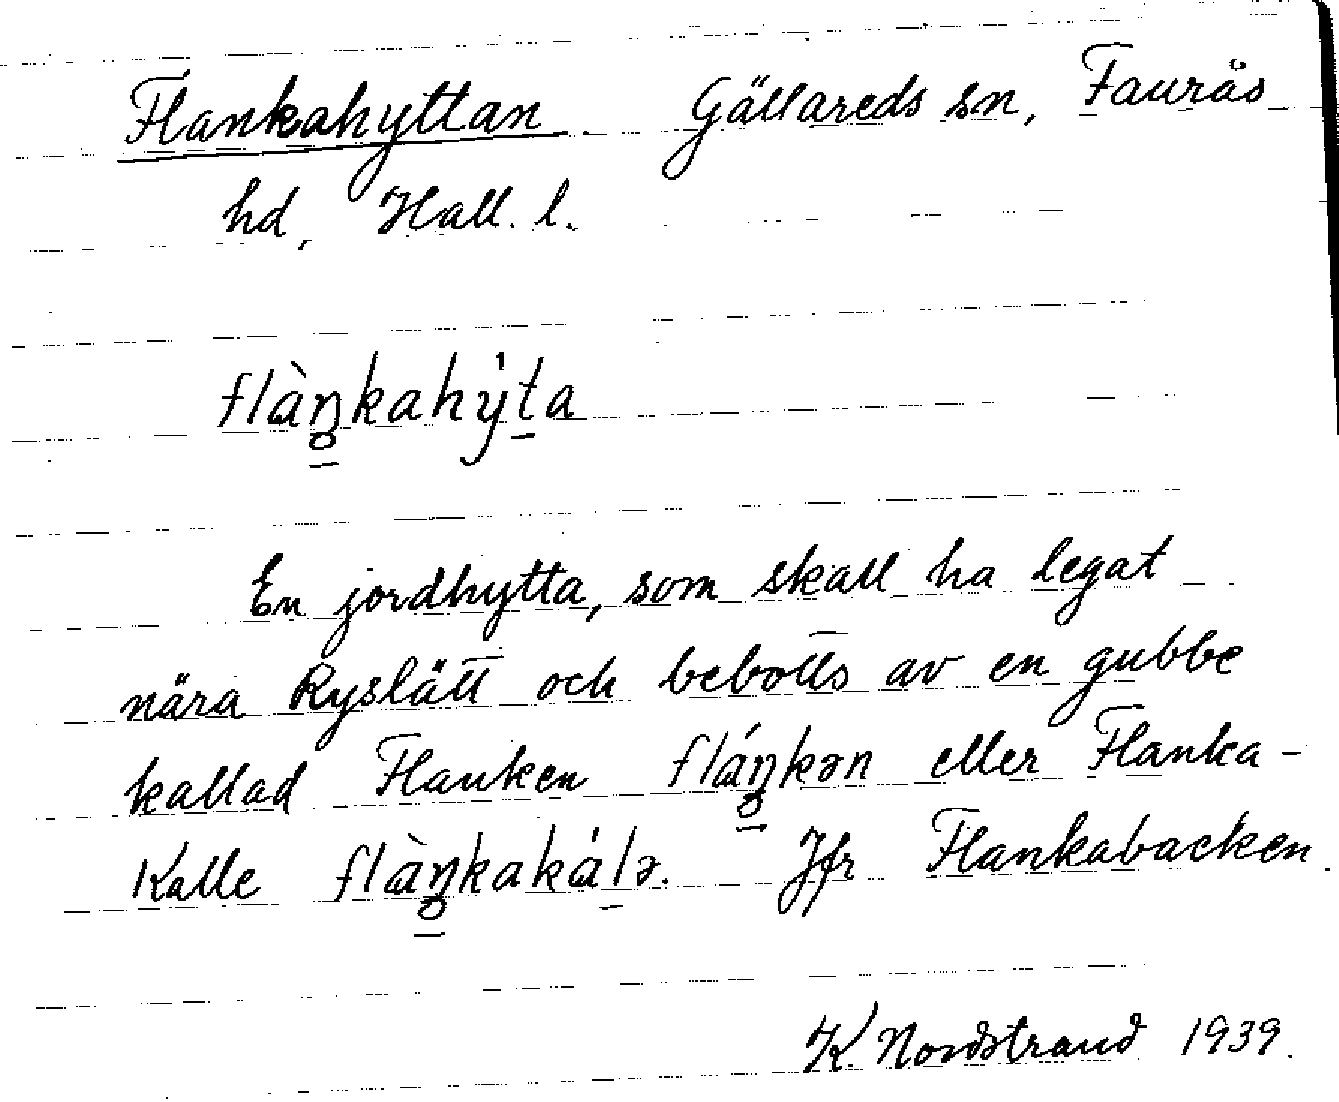 Flankahyttan Gällareds sn, Faurås
hd, Hall. l.
flàŋ̥̱kahy̍ṯa
En jordhytta, som skall ha legat
nära Ryslätt och bebotts av en gubbe
kallad Flanken fláŋ̥̱kən eller Flanka-
Kalle flàŋ̥̱kaka̍ḻə. Jfr Flankabacken
K. Nordstrand 1939.